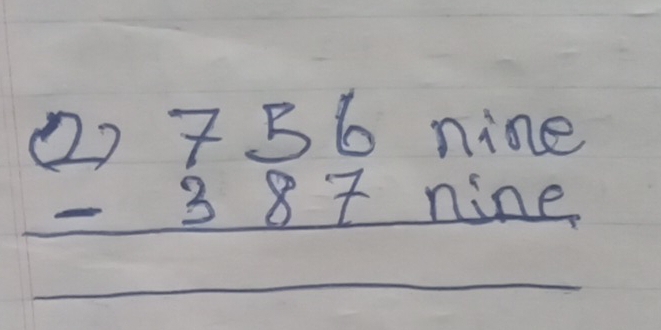 2) 7 5 6 nine
- 3 8 7 nine